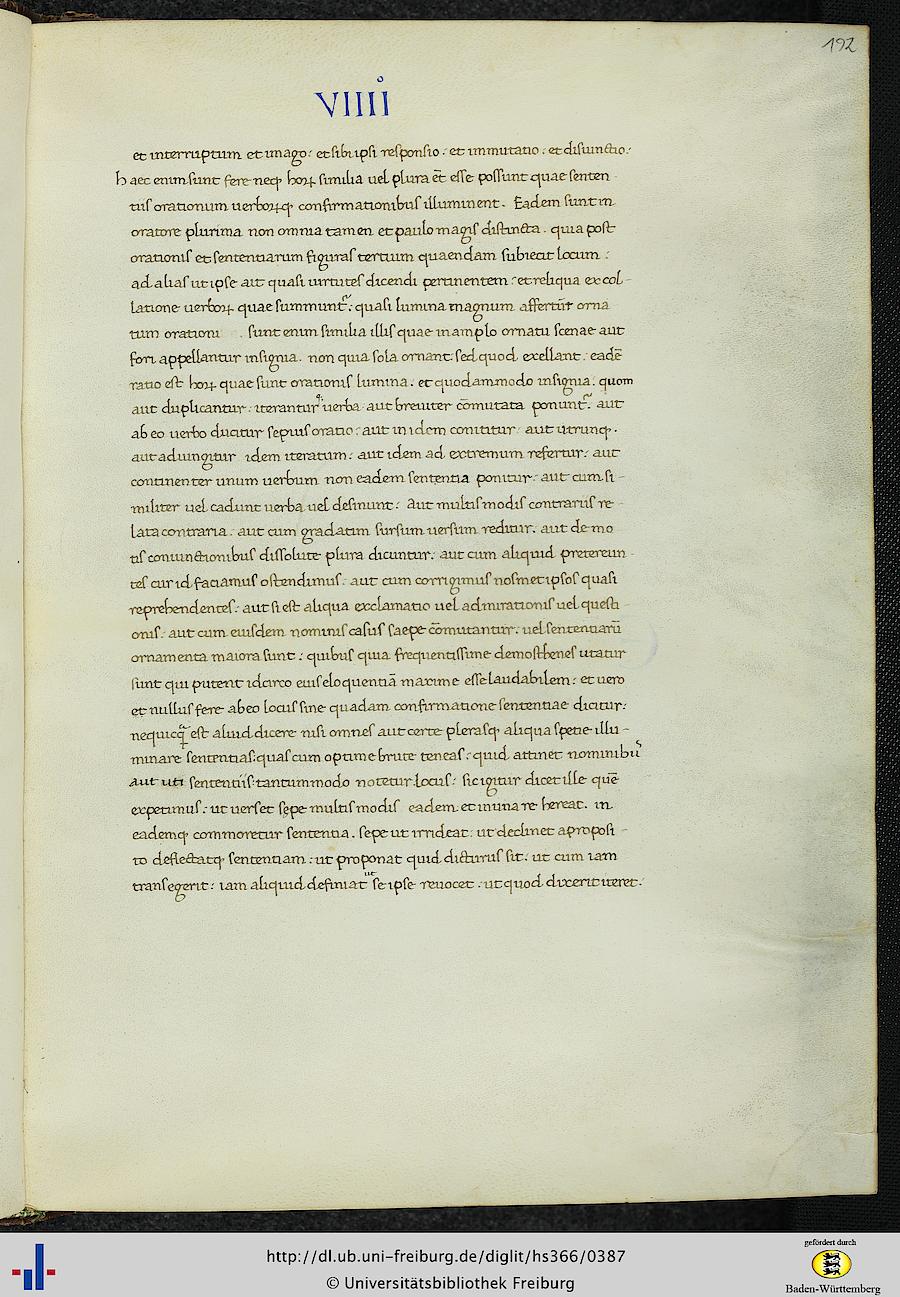 192
VIIII°
et interruptum et imago: et sibi ipsi responsio: et immutatio: et disiunctio:
haec enim sunt fere neq; hoꝝ similia uel plura ēt esse possunt quae senten
tiis orationum uerboꝝq; confirmationibus illuminent. Eadem sunt in
oratore plurima non omnia tamen et paulo magis distincta. quia post
orationis et sententiarum figuras tertium quaendam subiecit locum:
ad alias ut ipse ait quasi uirtutes dicendi pertinentem: et reliqua ex col-
latione uerboꝝ quae summunt᷑: quasi lumina magnum affert᷑ orna
tum orationi . sunt enim similia illis quae in amplo ornatu scenae aut
fori appellantur insignia. non quia sola ornant: sed quod exellant. eadē
ratio est hoꝝ quae sunt orationis lumina. et quodammodo insignia. quom
aut duplicantur: iteranturq; uerba aut breuiter cōmutata ponunt᷑. aut
ab eo uerbo ducitur sepius oratio: aut in idem conititur: aut utrunq;.
aut adiungitur idem iteratum: aut idem ad extremum refertur: aut
continenter unum uerbum non eadem sententia ponitur: aut cum si-
militer uel cadunt uerba uel desinunt: Aut multis modis contrariis re-
lata contraria. aut cum gradatim sursum uersum reditur. aut demo
tis coniunctionibus dissolute plura dicuntur: aut cum aliquid pretereun-
tes cur id faciamus ostendimus: aut cum corrigimus nosmet ipsos quasi
reprehendentes: aut si est aliqua exclamatio uel admirationis uel questi-
onis: aut cum eiusdem nominis casus saepe cōmutantur: uel sententiarū
ornamenta maiora sunt: quibus quia frequentissime demosthenes utatur
sunt qui putent idcirco eius eloquentiā maxime esse laudabilem: et uero
et nullus fere ab eo locus sine quadam confirmatione sententiae dicitur:
nequicq̄ est aliud dicere nisi omnes aut certe plerasq; aliqua spetie illu-
minare sententias: quas cum optime brute teneas: quid attinet nominibus
aut uti sententiis: tantummodo notetur locus: sic igitur dicet ille quē
expetimus: ut uerset sępe multis modis eadem et in una re hereat. in
eademq; commoretur sententia. sepe ut irrideat: ut declinet a proposi-
to deflectatq; sententiam: ut proponat quid dicturus sit: ut cum iam
transegerit: iam aliquid definiat ut se ipse reuocet: ut quod dixerit iteret:
http://dl.ub.uni-freiburg.de/diglit/hs366/0387
© Universitätsbibliothek Freiburg
gefördert durch
Baden-Württemberg